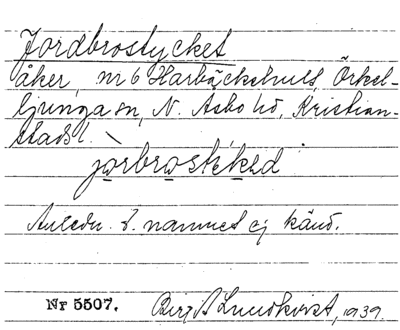 Jordbrostycket
åker, nr 6 Harbäckshult, Örkel-
ljunga sn, N. Åsbo hd, Kristian-
stads l.
jorbrostékəd
Anledn. t. namnet ej känd.
Nr 5507. Birgit Lundkvist, 1939.